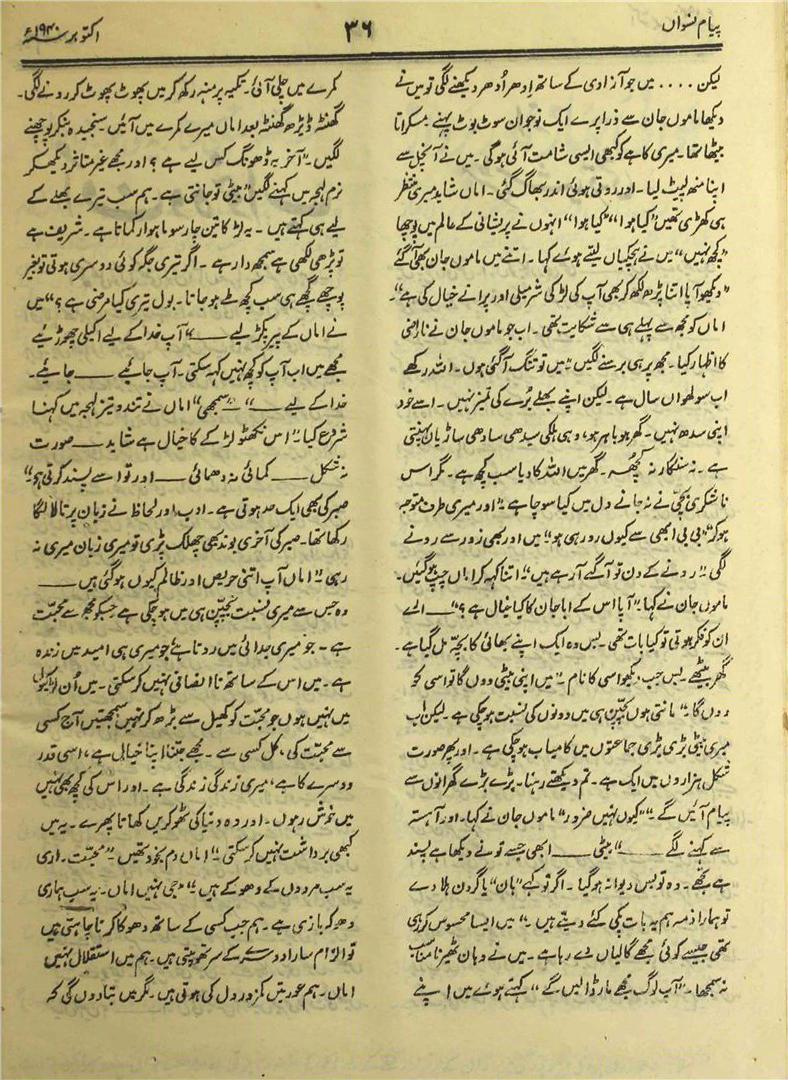 پیام نسواں
۳۶
اکتوبر ۱۹۴۰ء
لیکن .... میں جو آزادی کے ساتھ اِدھر اُدھر دیکھنے لگی تو میں نے
دیکھا ماموں جان سے ذرا پرے ایک نوجوان سوٹ بوٹ پہنے مسکراتا
بیٹھا تھا۔ میری کاہے کو کبھی ایسی شامت آئی ہوگی۔ میں نے آنچل سے
اپنا منھ لپیٹ لیا۔ اور روتی ہوئی اندر بھاگ گئی۔ اماں شاید میری منتظر
ہی کھڑی تھیں "کیا ہوا" "کیا ہوا" انہوں نے پریشانی کے عالم میں پوچھا
"کچھ نہیں" میں نے ہچکیاں لیتے ہوئے کہا۔ اتنے میں ماموں جان بھی آگئے
"دیکھو آپا اتنا پڑھ لکھ کر بھی آپ کی لڑکی شرمیلی اور پرانے خیال کی ہے"۔
اماں کو مجھ سے پہلے ہی سے شکایت تھی۔ اب جو ماموں جان نے ناراضی
کا اظہار کیا۔ مجھ پر ہی برسنے لگیں "میں تو تنگ آگئی ہوں۔ اللہ رکھے
اب سولھواں سال ہے۔ لیکن اپنے بھلے بُرے کی تمیز نہیں۔ اسے خود
اپنی سدھ نہیں۔ گھر ہو باہر ہو، وہی ہلکی سیدھی سادھی ساڑیاں پہنتی
ہے۔ نہ سنگار نہ کچھ۔ گھر میں اللہ کا دیا سب کچھ ہے۔ مگر اس
ناشکری بچی نے نہ جانے دل میں کیا سوچا ہے" اور میری طرف متوجہ
ہو کر "بی بی ابھی سے کیوں رو رہی ہو" میں اور بھی زور سے رونے
لگی "رونے کے دن تو آگے آرہے ہیں" اتنا کہہ کر اماں چپ ہوگئیں۔
ماموں جان نے کہا "آپا اس کے اباجان کا کیا خیال ہے؟" "اے
ان کو فکر ہوتی تو کیا بات تھی۔ بس وہ ایک اپنے بھائی کا بچہ مل گیا ہے۔
گھر بیٹھے۔ بس جب دیکھو اسی کا نام۔ "میں اپنی بیٹی دوں گا تو اسی کو
دوں گا" مانتی ہوں بچپن ہی میں دونوں کی نسبت ہوچکی ہے۔ لیکن اب
میری بیٹی بڑی بڑی جماعتوں میں کامیاب ہوچکی ہے۔ اور پھر صورت
شکل ہزاروں میں ایک ہے۔ تم دیکھتے رہنا۔ بڑے بڑے گھرانوں سے
پیام آئیں گے" "کیوں نہیں ضرور" ماموں جان نے کہا۔ اور آہستہ
سے کہنے لگے ــــــ "بیٹی ــــــ ابھی جسے تو نے دیکھا ہے پسند
ہے تجھے۔ وہ تو بس دیوانہ ہوگیا۔ اگر تو کہے "ہاں" یا گردن ہلا دے
تو ہمارا ذمہ ہم یہ بات پکی کئے دیتے ہیں۔" میں ایسا محسوس کر رہی
تھی جیسے کوئی مجھے گالیاں دے رہا ہے۔ میں نے وہاں ٹھیرنا مناسب
نہ سمجھا۔ "آپ لوگ مجھے مار ڈالیں گے" کہتے ہوئے میں اپنے
کمرے میں چلی آئی۔ تکیہ پر منہ رکھ کر میں پھوٹ پھوٹ کر رونے لگی۔
گھنٹہ ڈیڑھ گھنٹہ بعد اماں میرے کمرے میں آئیں۔ سنجیدہ بنکر پوچھنے
لگیں۔ "آخر یہ ڈھونگ کس لیے ہے؟ اور مجھے غیر متاثر دیکھ کر
نرم لہجہ میں کہنے لگیں "بیٹی تو جانتی ہے۔ ہم سب تیرے بھلے کے
لیے ہی کہتے ہیں۔ یہ لڑکا تین چار سو ماہوار کماتا ہے۔ شریف ہے
تو پڑھی لکھی ہے سمجھ دار ہے۔ اگر تیری جگہ کوئی دوسری ہوتی تو بغیر
پوچھے گچھے ہی سب کچھ طے ہو جاتا۔ بول تیری کیا مرضی ہے؟" میں
نے اماں کے پیر پکڑ لیے ــــــ "آپ خدا کے لیے اکیلی چھوڑئیے
مجھے میں اب آپ کو کچھ نہیں کہہ سکتی۔ آپ جائیے ــــــ جائیے۔
خدا کے لیے ــــــ" "سمجھی" اماں نے تند و تیز لہجہ میں کہنا
شروع کیا "اس نکھٹو لڑکے کا خیال ہے شاید ــــــ صورت
نہ شکل ــــــ کمائی نہ دھمائی ــــــ اور تو اسے پسند کرتی ہو"
صبر کی بھی ایک حد ہوتی ہے۔ ادب اور لحاظ نے زبان پر تالا لگا
رکھا تھا۔ صبر کی آخری بوند بھی چھلک پڑی تو میری زبان میری نہ
رہی "اماں آپ اتنی حریص اور ظالم کیوں ہوگئی ہیں ــــــ
وہ جس سے میری نسبت بچپن ہی میں ہوچکی ہے جسکو مجھ سے محبت
ہے۔ جو میری جدائی میں روتا ہے جو میری ہی امید میں زندہ
ہے۔ میں اس کے ساتھ نا انصافی نہیں کرسکتی۔ میں اُن لڑکیوں
میں نہیں ہوں جو محبت کو کھیل سے بڑھ کر نہیں سمجھتیں آج کسی
سے محبت کی، کل کسی سے۔ مجھے جتنا اپنا خیال ہے، اسی قدر
دوسرے کا ہے، میری زندگی زندگی ہے۔ اور اس کی کچھ بھی نہیں
میں خوش رہوں۔ اور وہ دنیا کی ٹھوکریں کھاتا پھرے۔ یہ میں
کبھی برداشت نہیں کرسکتی" اماں دم بخود تھیں "محبت۔ اری
یہ سب مردوں کے دھوکے ہیں" "جی نہیں اماں۔ یہ سب ہماری
دھوکہ بازی ہے۔ ہم جب کسی کے ساتھ دھوکا کرنا چاہتی ہیں
تو الزام سارا دوسرے کے سر تھوپتی ہیں۔ ہم میں استقلال نہیں
اماں۔ ہم عورتیں کمزور دل کی ہوتی ہیں۔ مگر میں بتا دوں گی کہ